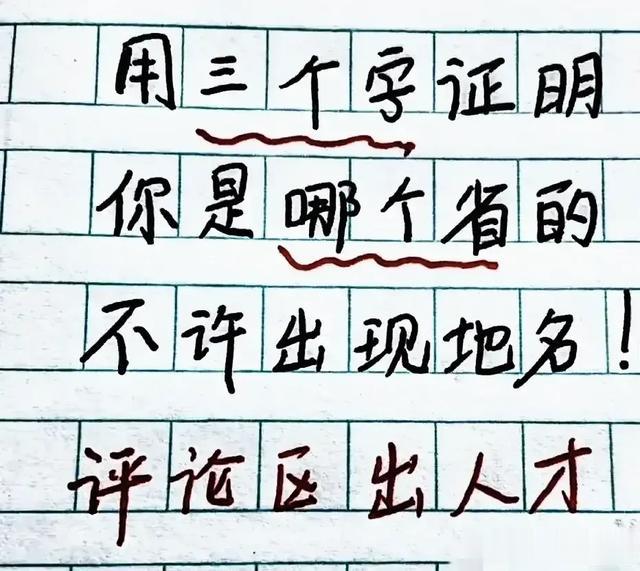 用三个字证明
你是哪个省的
不许出现地名!
评论区出人才